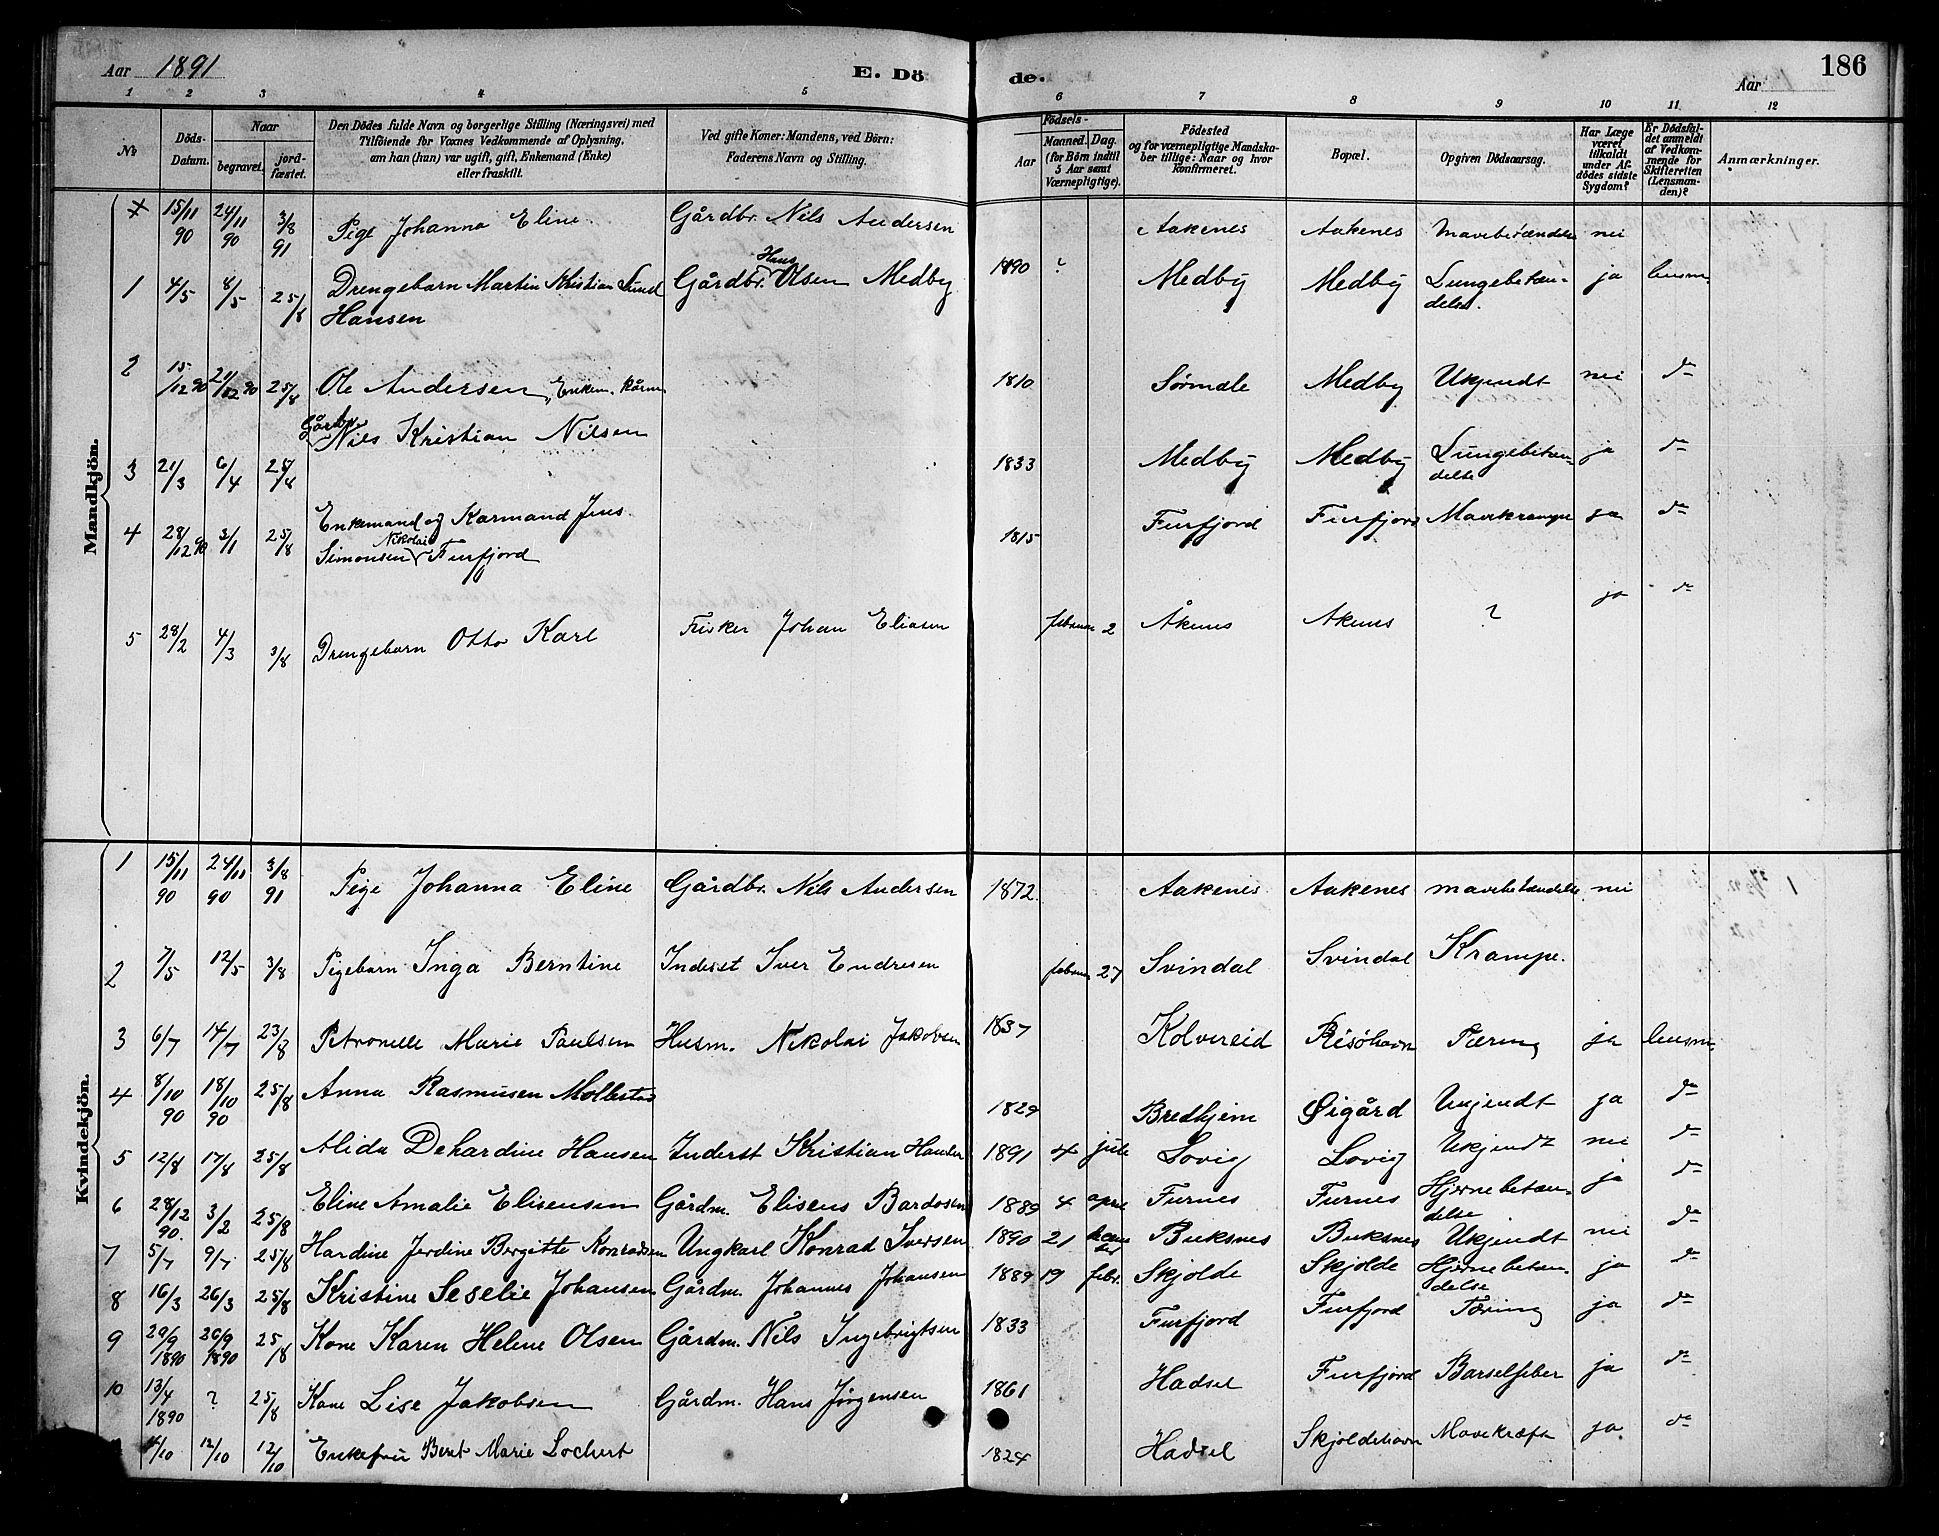 Aar 1891
E. Dö de.
Aar
186
1 2 3 4 5 6 7 8 9 10 11 12
No
Döds-Datum.
Naar
begravet.
jord-fæstet.
Den Dödes fulde Navn og borgerlige Stilling (Næringsvei) med
Tilföiende for Voxnes Vedkommende af Oplysning,
om han (hun) var ugift, gift, Enkemand (Enke)
eller fraskilt.
Ved gifte Koner: Mandens, ved Börn:
Faderens Navn og Stilling.
Födsels-
Aar
Maaned. Dag.
(for Börn indtil
5 Aar samt
Værnepligtige).
Födested
og for værnepligtige Mandska-
ber tillige: Naar og hvor
konfirmeret.
Bopæl.
Opgiven Dödsaarsag.
Har Læge
været
tilkaldt
under Af-
dödes sidste
Sygdom?
Er Dödsfal-
det anmeldt
af Vedkom-
mende for
Skifteretten
(Lensman-
den)?
Anmærkninger.
Mandkjön.
15/11 90 24/11 90 3/8 91 Pige Johanna Eline Gårdbr. Nils Andersen Aakenes Aakenes Mavebetændelse nei
1 4/5 8/5 25/8 Drengebarn Martin Kristian Lund Gårdbr. Hans Olsen Medby 1890 ? Medby Medby Lungebetæn- ja lensm.
Hansen delse.
2 15/12 90 21/12 90 25/8 Ole Andersen, Enkem. kårm 1810 Sørmæle Medby Ukjendt nei do
Gårdbr.
3 21/3 6/4 25/8 Nils Kristian Nilsen 1833 Medby Medby Lungebetæn- ja do
delse
4 28/12 90 3/1 25/8 Enkemand og Karmand Jens 1815 Furfjord Furfjord Mavekrampe ja do
Simonsen Nikolai Furfjord
5 28/2 4/3 3/8 Drengebarn Otto Karl Fisker Johan Eliasen februar 2 Åkenes Akenes ? ja do
Kvindekjön.
1 15/11 90 24/11 90 3/8 91 Pige Johanna Eline Gårdbr. Nils Andersen 1872 Aakenes Aakenes mavebetændelse nei
2 7/5 12/5 3/8 Pigebarn Inga Berntine Inderst Iver Endresen februar 27 Svindal Svindal Krampe.
3 6/7 14/7 23/8 Petronelle Marie Paulsen Husm. Nikolai Jakobsen 1837 Kolvereid Risöhavn Tæring ja lensm.
4 8/10 90 18/10 90 25/8 Anna Rasmusen Mollestad 1829 Bredhjem Øigård Ukjendt ja do
5 12/8 17/8 25/8 Alida Dehardine Hansen Inderst Kristian Hansen 1891 4 jule Lovig Lovig Ukjendt nei do
6 28/12 90. 3/2 25/8 Eline Amalie Elisensen Gårdm. Elisens Bardosen 1889 4 apri Furnes Furnes Hjernebetæn- ja do
delse
7 5/7 9/7 25/8 Hardine Jerdine Bergitte Konradsen Ungkarl Konrad Iversen 1890 21 Buksnes Buksnes Ukjendt nei do
8 16/3 26/3 25/8 Kristine Seselie Johansen Gårdm. Johannes Johansen 1889 19 febr. Skjolde Skjolde Hjernebetæn- ja do
delse
9 20/9 1890 26/9 1890 25/8 Kone Karen Helene Olsen Gårdm. Nils Ingebrigtsen 1833 Furfjord Furfjord Tæring ja do
10 13/4 1890 ? 25/8 Kone Lise Jakobsen Gårdm. Hans Jørgensen 1861 Hadsel Furfjord Barselfeber ja do
12/10 12/10 Enkefru Beret Marie Lochert 1824 Hadsel Skjoldehavn Mavekræft ja do